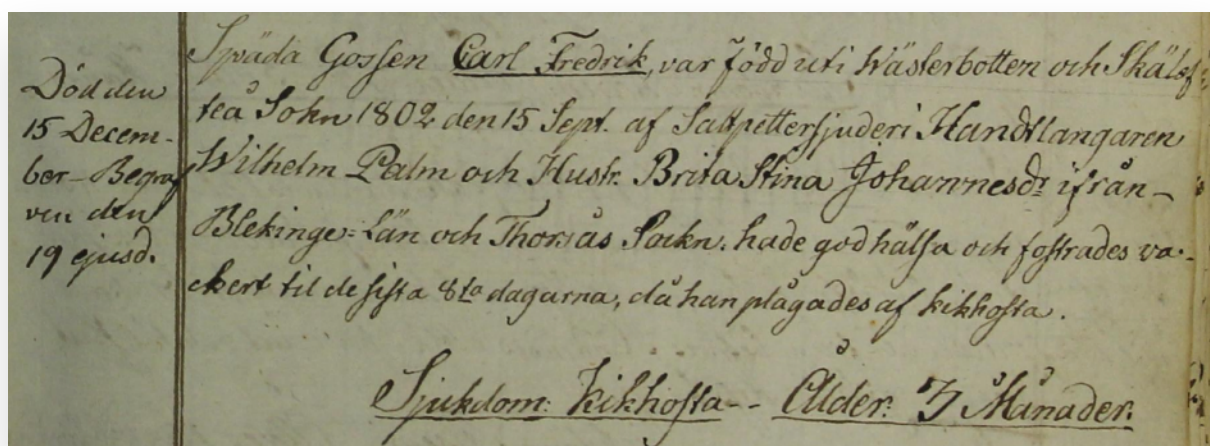 Död den
15 Decem-
ber - Begraf
ven den
19 ejusd.
Späda Gossen Carl Fredrik, var född uti Wästerbotten och Skälef
teå Sokn 1802 den 15 Sept. af Saltpettersjuderi Handtlangaren
Wilhelm Palm och Hustr. Brita Stina Johannesdr ifrån
Blekinge-Län och Thorsås Sockn. hade god hälsa och fostrades va-
ckert til de sista 8ta dagarna, då han plågades af kikhosta.
Sjukdom: Kikhosta -- Ålder: 3 Månader.